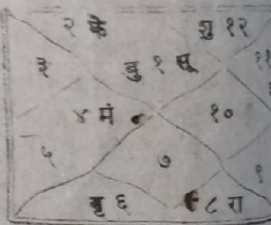 २ के शु १२
३ बु १ सू ११
४ मं १०
५ ७ ९
बृ ६ ८ रा